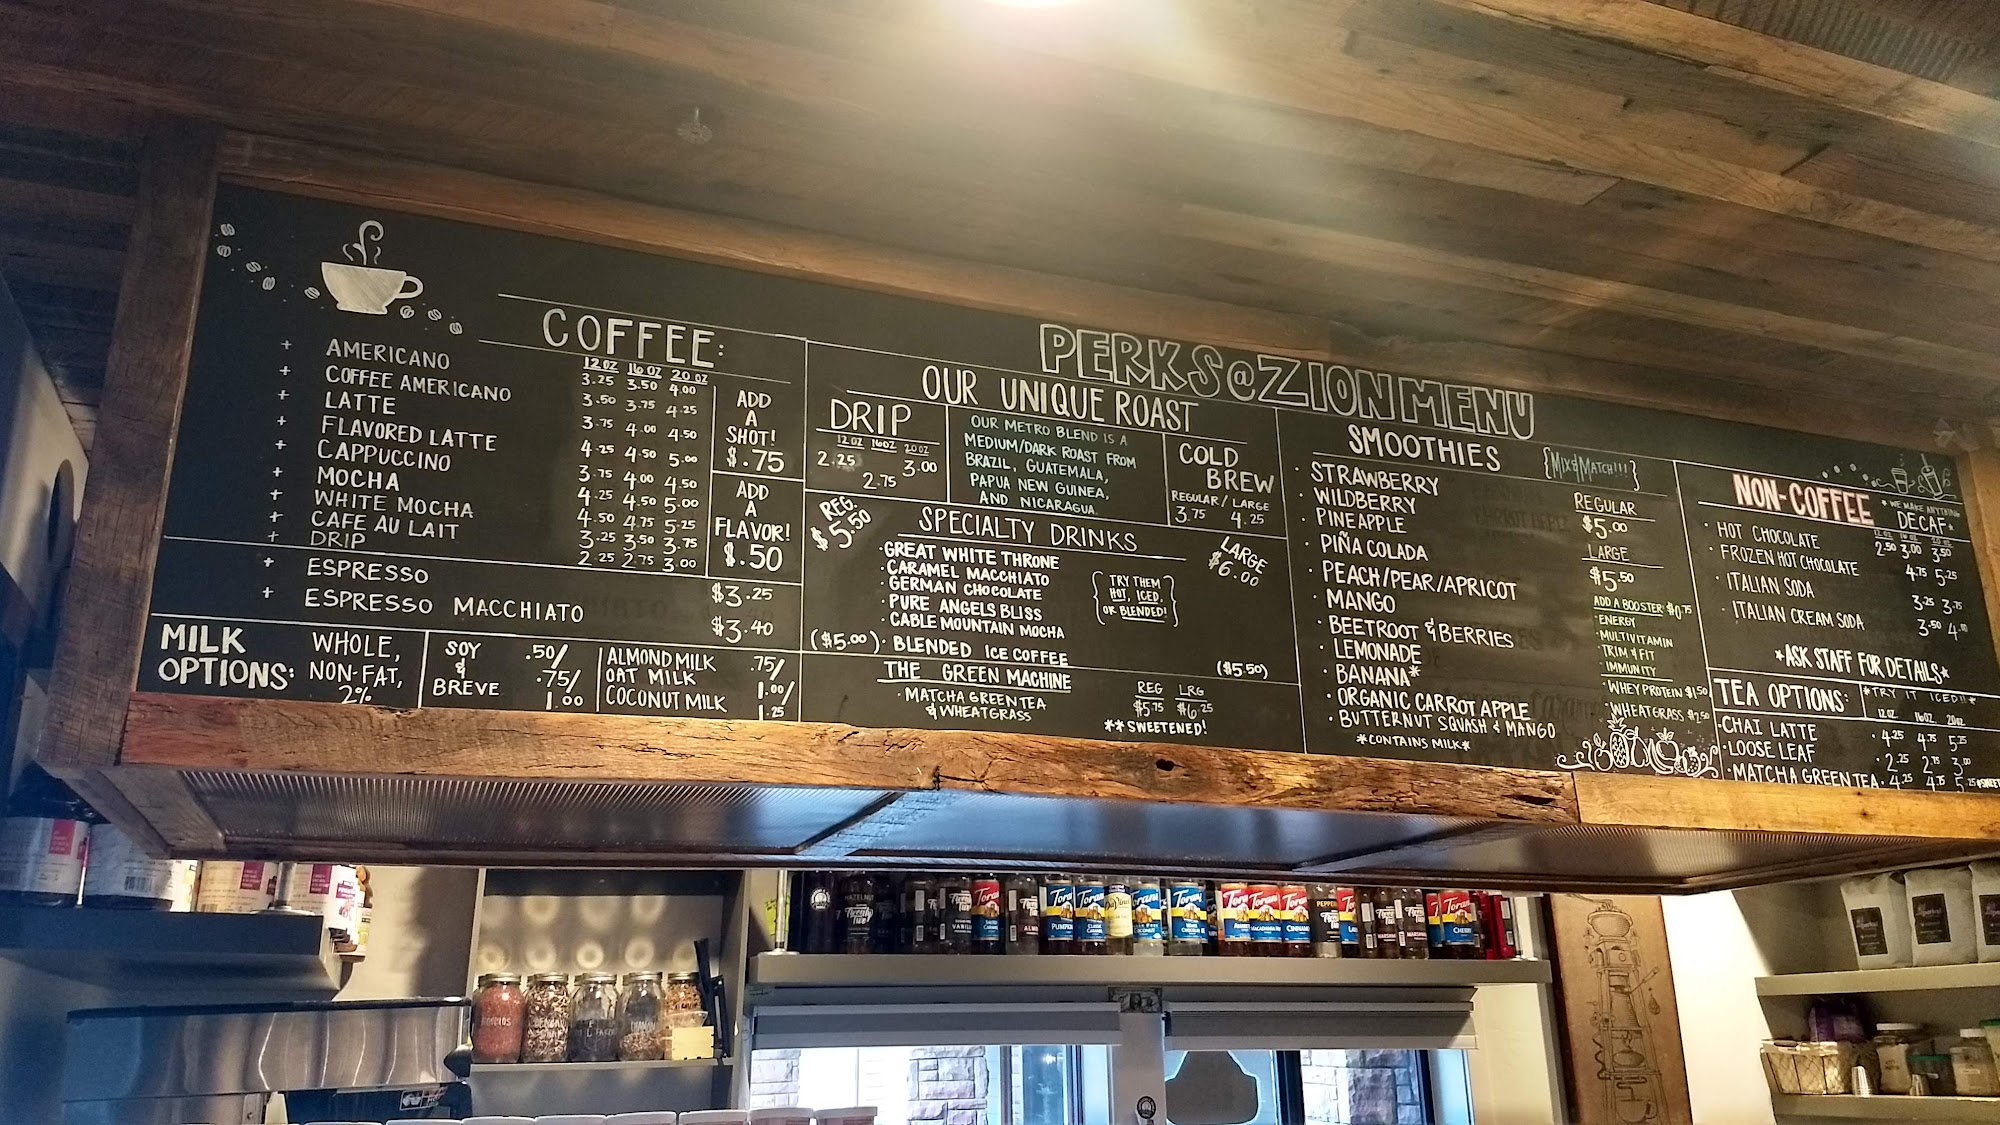 PERKS@ZION MENU
COFFEE:
12 OZ 16 OZ 20 OZ
+ AMERICANO 3.25 3.50 4.00
+ COFFEE AMERICANO 3.50 3.75 4.25
+ LATTE 3.75 4.00 4.50
+ FLAVORED LATTE 4.25 4.50 5.00
+ CAPPUCCINO 3.75 4.00 4.50
+ MOCHA 4.25 4.50 5.00
+ WHITE MOCHA 4.50 4.75 5.25
+ CAFE AU LAIT 3.25 3.50 3.75
+ DRIP 2.25 2.75 3.00
+ ESPRESSO $3.25
+ ESPRESSO MACCHIATO $3.40
ADD
A
SHOT!
$.75
ADD
A
FLAVOR!
$.50
MILK
OPTIONS:
WHOLE,
NON-FAT,
2%
SOY
&
BREVE
.50/
.75/
1.00
ALMOND MILK
OAT MILK
COCONUT MILK
.75/
1.00/
1.25
OUR UNIQUE ROAST
DRIP
12 OZ 16OZ 20OZ
2.25 2.75 3.00
OUR METRO BLEND IS A
MEDIUM/DARK ROAST FROM
BRAZIL, GUATEMALA,
PAPUA NEW GUINEA,
AND NICARAGUA.
COLD
BREW
REGULAR / LARGE
3.75 4.25
REG.
$5.50
SPECIALTY DRINKS
LARGE
$6.00
· GREAT WHITE THRONE
· CARAMEL MACCHIATO
· GERMAN CHOCOLATE
· PURE ANGELS BLISS
· CABLE MOUNTAIN MOCHA
($5.00) · BLENDED ICE COFFEE ($5.50)
TRY THEM
HOT, ICED,
OR BLENDED!
THE GREEN MACHINE
· MATCHA GREEN TEA
& WHEATGRASS
REG LRG
$5.75 $6.25
** SWEETENED!
SMOOTHIES
{MIX & MATCH!!!}
· STRAWBERRY
· WILDBERRY
· PINEAPPLE
· PIÑA COLADA
· PEACH/PEAR/APRICOT
· MANGO
· BEETROOT & BERRIES
· LEMONADE
· BANANA*
· ORGANIC CARROT APPLE
· BUTTERNUT SQUASH & MANGO
*CONTAINS MILK*
REGULAR
$5.00
LARGE
$5.50
ADD A BOOSTER! $0.75
· ENERGY
· MULTIVITAMIN
· TRIM & FIT
· IMMUNITY
· WHEY PROTEIN $1.50
· WHEATGRASS $2.50
NON-COFFEE
*WE MAKE ANYTHING
DECAF*
12 OZ 16 OZ 20 OZ
· HOT CHOCOLATE 2.50 3.00 3.50
· FROZEN HOT CHOCOLATE 4.75 5.25
· ITALIAN SODA 3.25 3.75
· ITALIAN CREAM SODA 3.50 4.00
*ASK STAFF FOR DETAILS*
TEA OPTIONS:
*TRY IT ICED!!*
12OZ 16OZ 20OZ
· CHAI LATTE · 4.25 4.75 5.25
· LOOSE LEAF · 2.25 2.75 3.00
· MATCHA GREEN TEA · 4.25 4.75 5.25
Torani
Torani
DaVinci
Torani
Torani
Torani
Torani
Torani
Torani
CHERRY